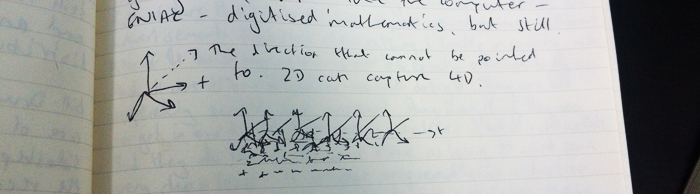 the computer -
ENIAC - digitised mathematics, but still
The direction that cannot be pointed
t to. 2D can capture 4D.